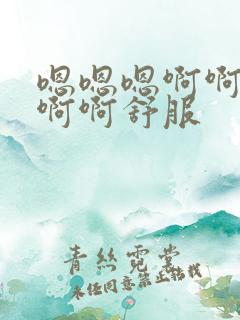 嗯嗯嗯啊啊
啊啊舒服
青丝霓裳
未经同意禁止转载